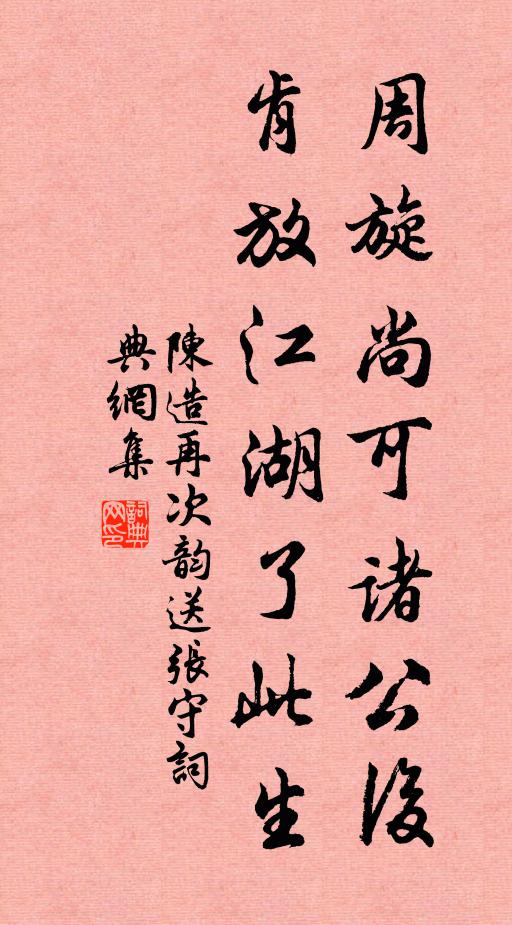 周旋尚可諸公後
肯放江湖了此生
陳造再次韵送張守詞
典網集
詞典網印